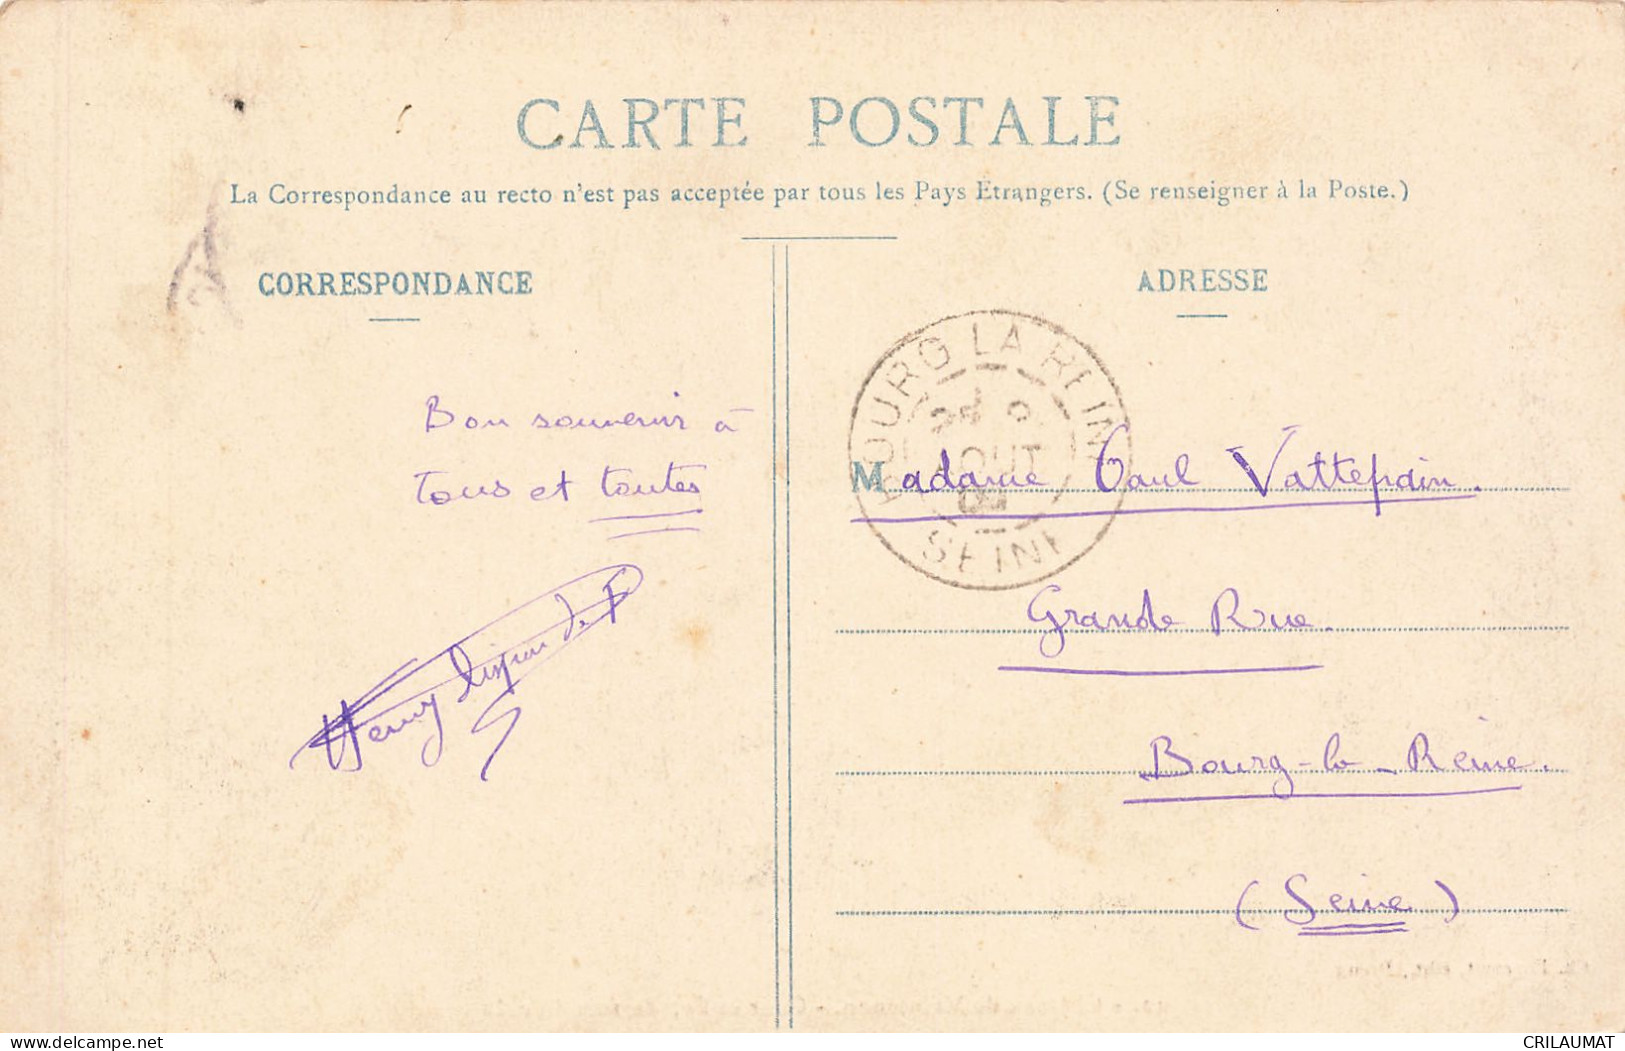 CARTE POSTALE
La Correspondance au recto n'est pas acceptée par tous les Pays Etrangers. (Se renseigner à la Poste.)
CORRESPONDANCE
ADRESSE
Bon souvenir à
Tous et toutes
Henry
BOURG LA REINE
AOUT
SEINE
Madame Paul Vattepain.
Grande Rue.
Bourg-la-Reine.
(Seine)
delcampe.net
CRILAUMAT